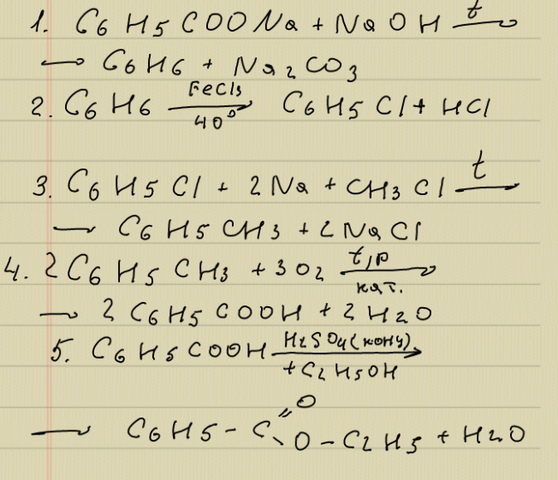 1. C6H5COONa + NaOH t→
→ C6H6 + Na2CO3
2. C6H6 FeCl3/40°→ C6H5Cl + HCl
3. C6H5Cl + 2Na + CH3Cl t→
→ C6H5CH3 + 2NaCl
4. 2C6H5CH3 + 3O2 t,p/кат.→
→ 2C6H5COOH + 2H2O
5. C6H5COOH H2SO4(конц)/+C2H5OH→
→ C6H5-C=O-O-C2H5 + H2O